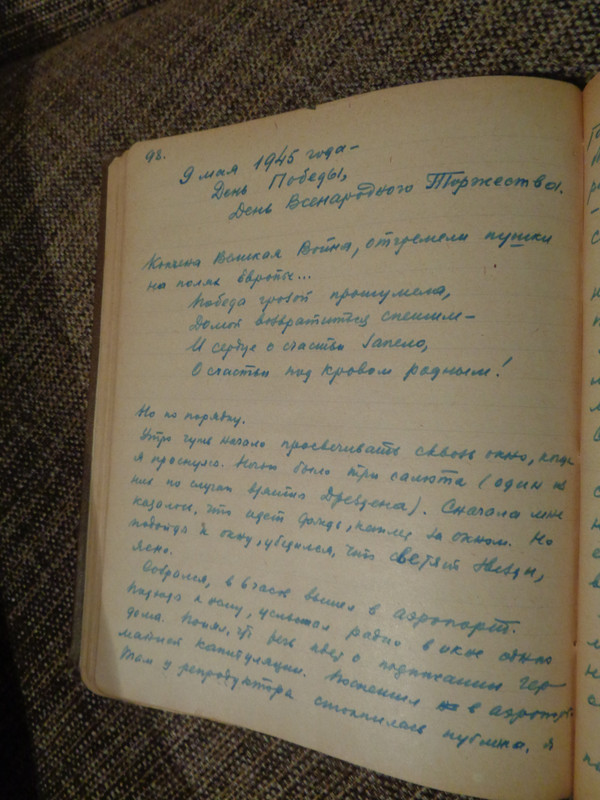 98.
9 мая 1945 года –
День Победы,
День Всенародного Торжества.
Кончена Великая Война, отгремели пушки
на полях Европы...
Победа грозой прошумела,
Домой возвратиться спешим –
И сердце о счастьи запело,
О счастьи под кровом родным!
Но по порядку.
Утро чуть начало просвечивать сквозь окно, когда
я проснулся. Ночью было три салюта (один из
них по случаю взятия Дрездена). Сначала мне
казалось, что идет дождь, капли за окном. Но
подойдя к окну, убедился, что светят звезды,
ясно.
Собрался, в 6 часов вышел в аэропорт.
Подходя к нему, услышал радио в окне одного
дома. Понял, что речь идет о подписании гер-
манией капитуляции. Поспешил в аэропорт.
Там у репродуктора столпилась публика. Я